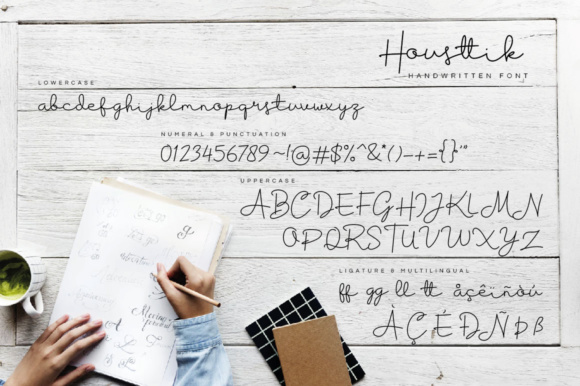 Housttik
HANDWRITTEN FONT
LOWERCASE
abcdefghijklmnopqrstuvwxyz
NUMERAL & PUNCTUATION
0123456789 ~!@#$%^&*()-+={}"°
UPPERCASE
ABCDEFGHIJKLMN
OPQRSTUVWXYZ
LIGATURE & MULTILINGUAL
ff gg ll tt åçêïñòú
ÅÇÉÐÑÞß